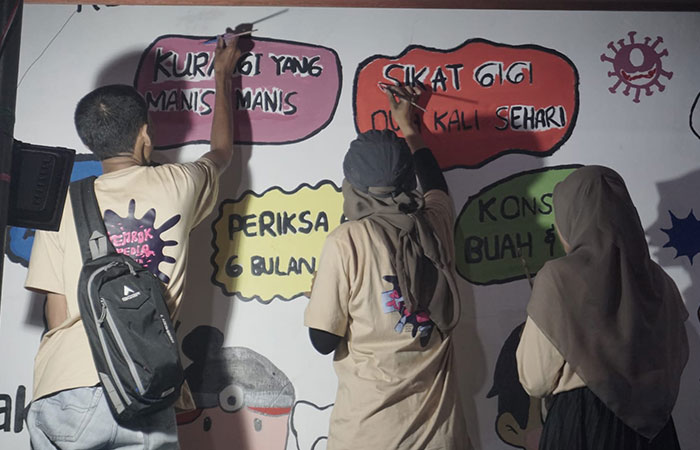 KURANGI YANG
MANIS MANIS
SIKAT GIGI
DUA KALI SEHARI
PERIKSA
6 BULAN
KONS
BUAH &
TEMBOK
MEDIA
ak